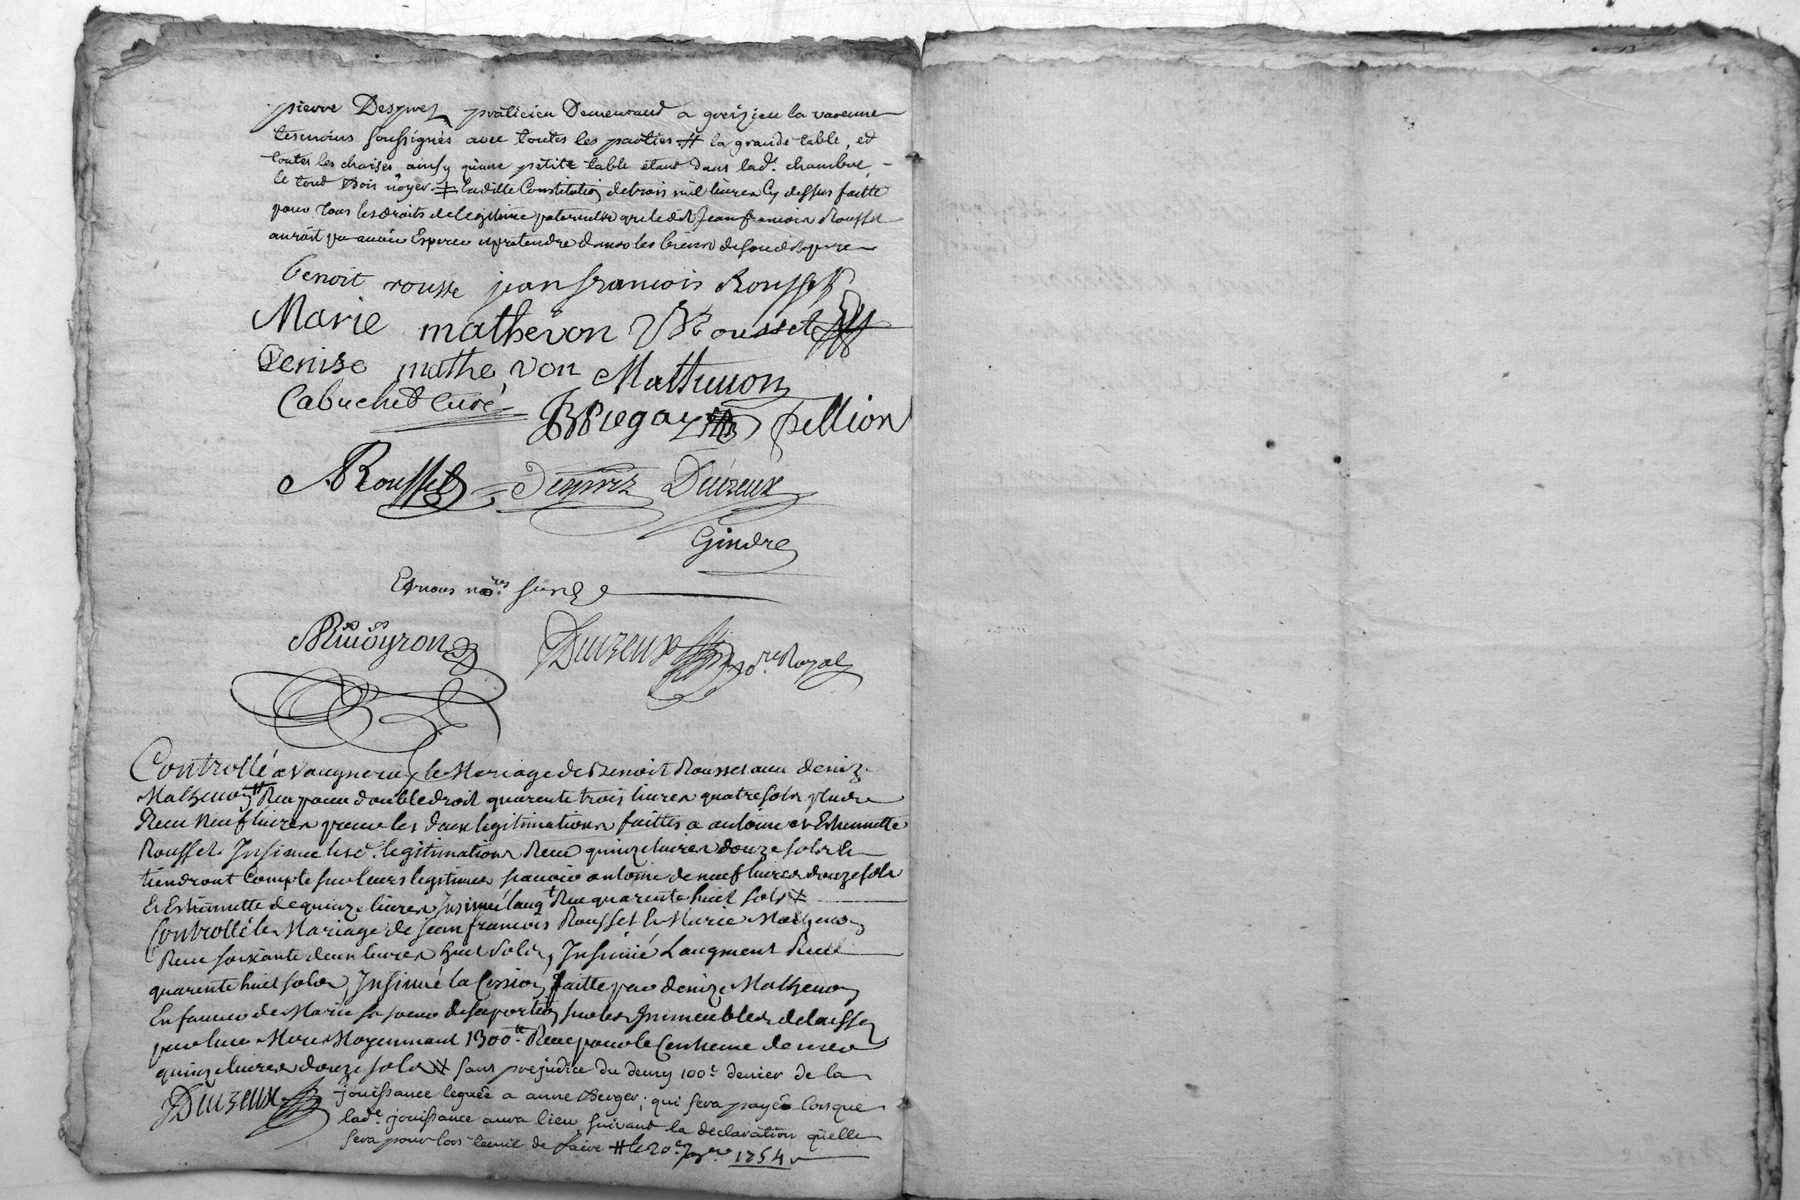 pierre Desprez praticien Demeurant a greizieu la varenne
tesmoins soussignés avec toutes les parties # la grande table, et
toutes les chaises, ainsy qu'une petite table étant dans lad.e chambre,
le tout Bois noyer # Laditte Constitution de trois mil livres Cy dessus faitte
pour tous les droits de legitime paternelle que led. Jean francois Rousset
auroit pu avoir Esperer et pretendre dans les biens de son d. pere
Benoit rousse jean francois Rousset
Marie mathevon Rousset
Denise mathe von Mathevon
Cabuchet Curé Pellion
Rousset Desprez Duzeux
Gindre
Et nous no.res
Duzeux no.re Royal
Controllé a Vaugneray le Mariage de Benoit Rousset avec deniz.
Mathevon # Reçu pour double droit quarente trois livres quatre sols plus
Reçu Neuf livres pour les deux legitimations faittes a antoine et Estiennette
Rousset. Insinué lesd. legitimations Reçu quinze livres douze sols Et
tiendront Compte sur leurs legitimes scavoir antoine de neuf livres douze sols
Et Estiennette de quinze livres Insinué l'aug.t Reçu quarente huit sols #
Controllé le Mariage de Jean francois Rousset Et Marie Mathevon
Reçu soixante deux livres huit sols, Insinué L'augment Reçu
quarente huit sols, Insinué la Cession faitte par denize Mathevon
En faveur de Marie sa soeur de sa portion sur les Immeubles delaissez
par leur Mere Moyennant 1300 tt Reçu pour le Centieme denier
quinze livres douze sols # sans prejudice du demy 100.e denier de la
Duzeux jouissance leguée a anne Berger; qui sera payée lorsque
lad.e jouissance aura lieu suivant la declaration qu'elle
sera pour lors tenue de faire # le 20.e 1754